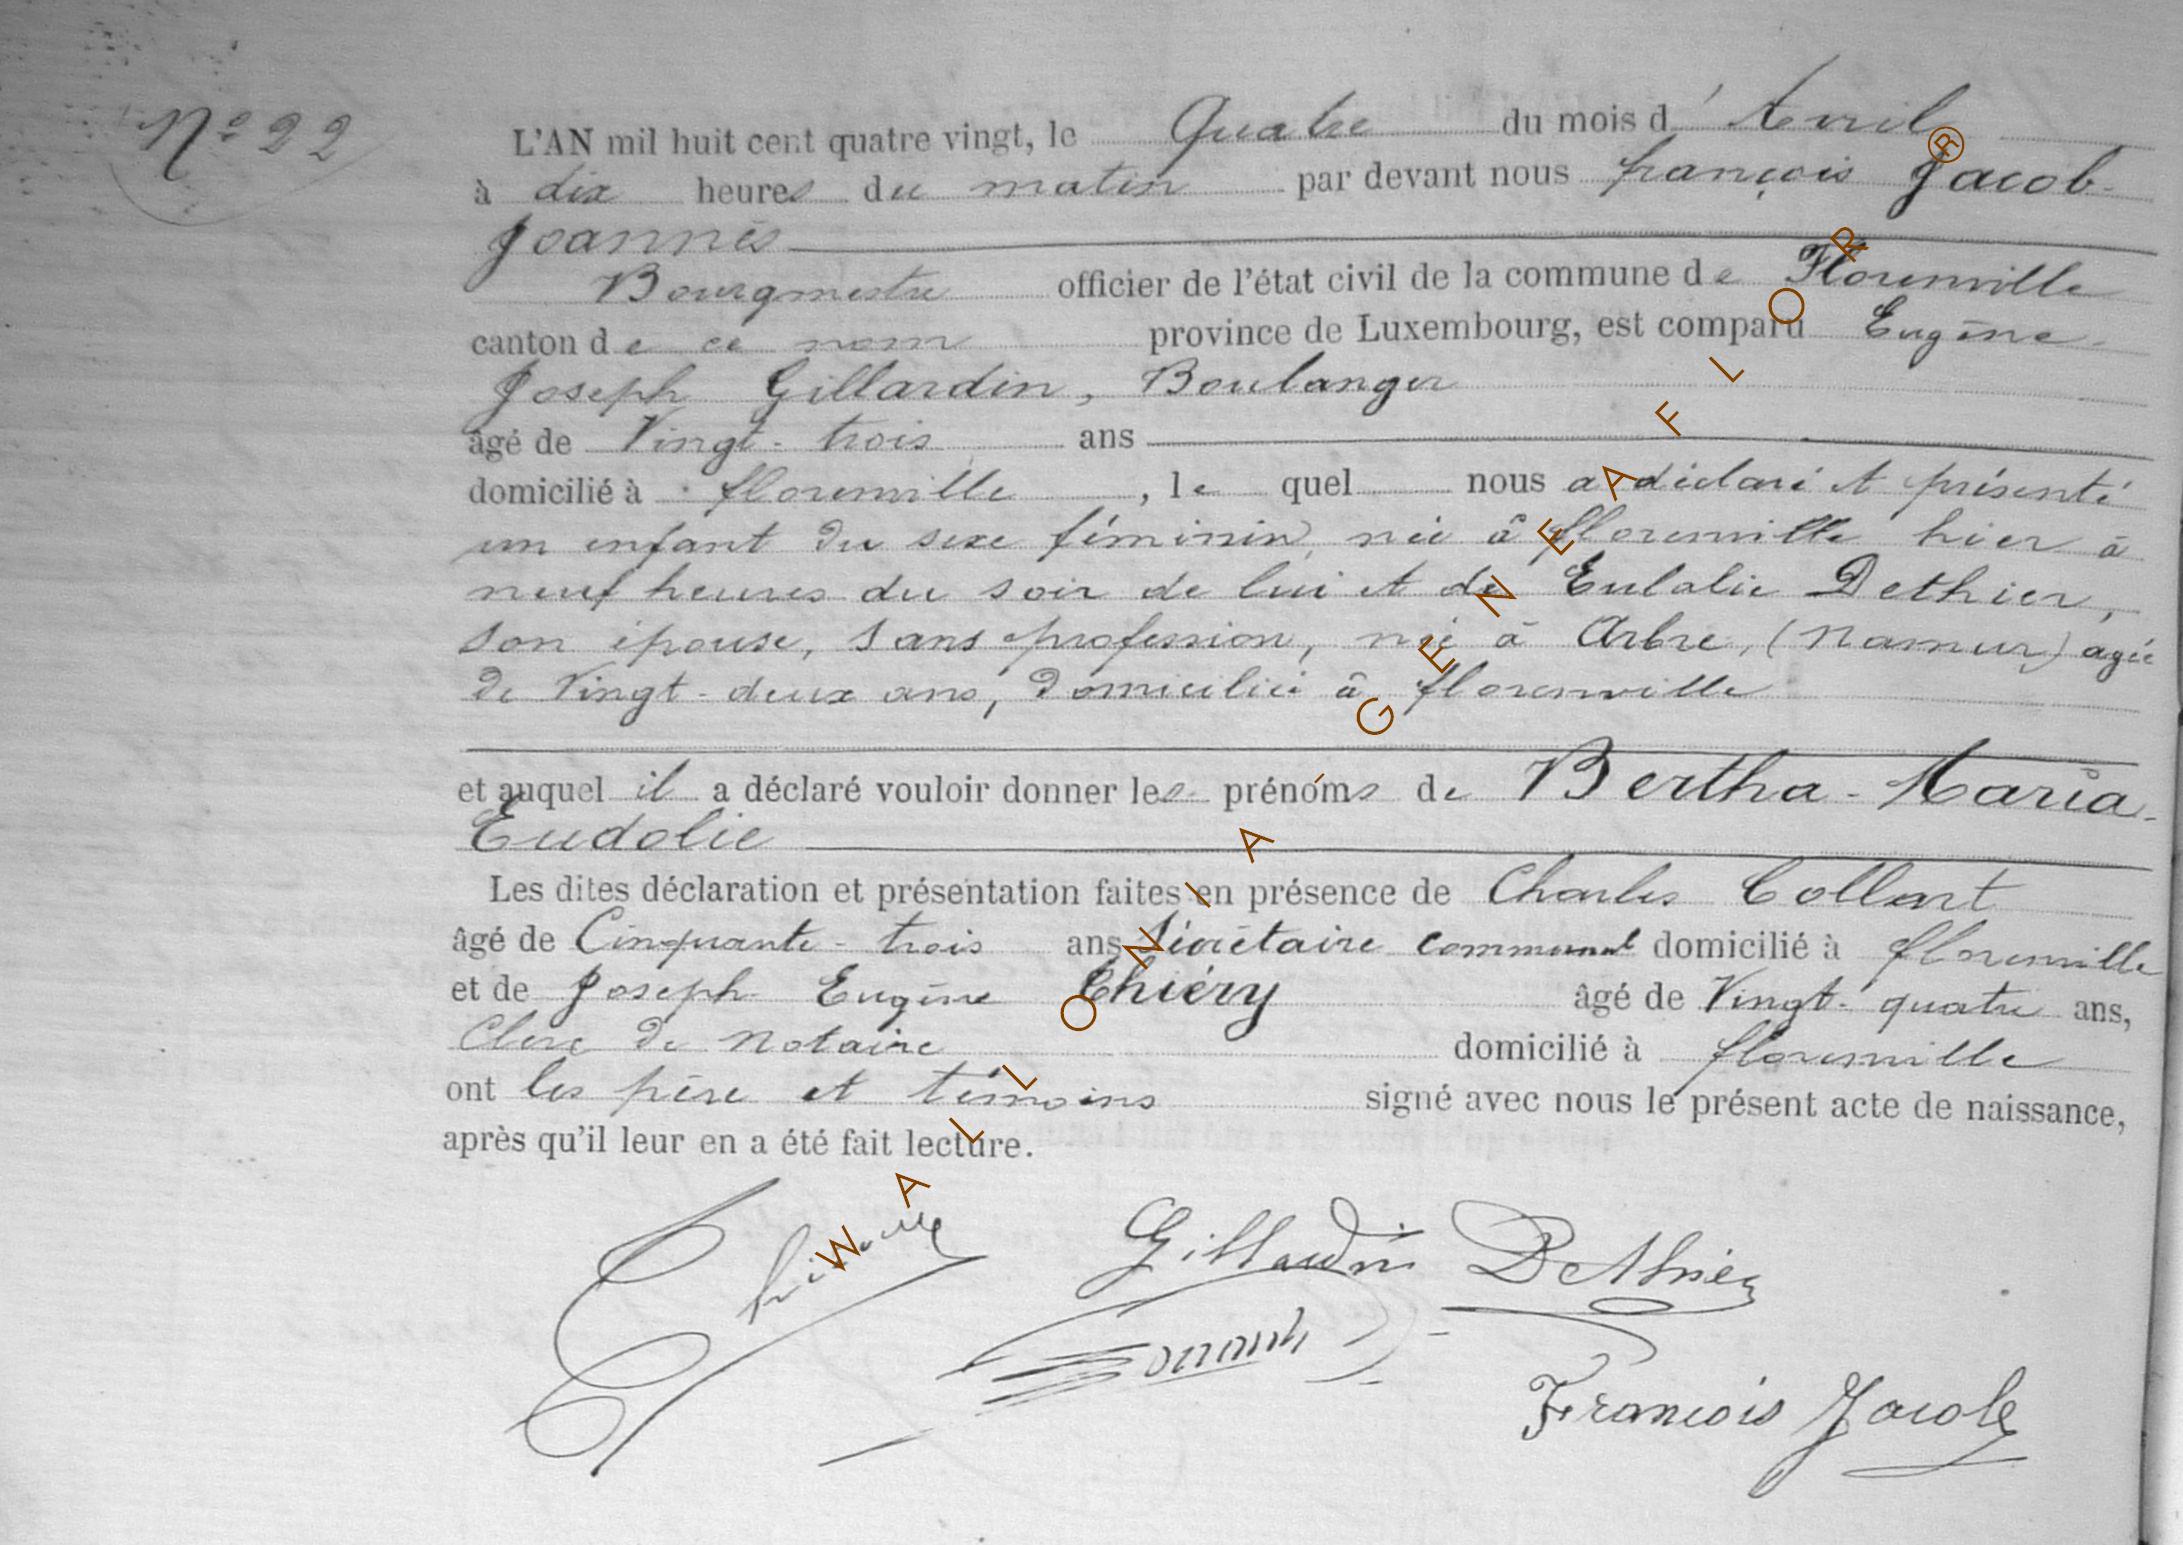 Nº 22
L'AN mil huit cent quatre vingt, le Quatre du mois d'Avril
à dix heures du matin par devant nous françois Jacob-
Joannès
Bourgmestre officier de l'état civil de la commune de Florenville
canton de ce nom province de Luxembourg, est comparu Eugène-
Joseph Gillardin, Boulanger
âgé de Vingt-trois ans
domicilié à florenville, le quel nous a déclaré et présenté
un enfant du sexe féminin, née à florenville hier à
neuf heures du soir de lui et de Eulalie Dethier,
son épouse, sans profession, née à Arbre, (Namur) agée
de Vingt-deux ans, domiciliée à florenville
et auquel il a déclaré vouloir donner les prénoms de Bertha-Maria-
Eudolie
Les dites déclaration et présentation faites en présence de Charles Collart
âgé de Cinquante-trois ans Sécrétaire communal domicilié à florenville
et de Joseph Eugène Thiéry âgé de Vingt-quatre ans,
Clerc de Notaire domicilié à florenville
ont les père et témoins signé avec nous le présent acte de naissance,
après qu'il leur en a été fait lecture.
Gillardin Dethier
François Jacob
WALLONIA GENEAFLOR®